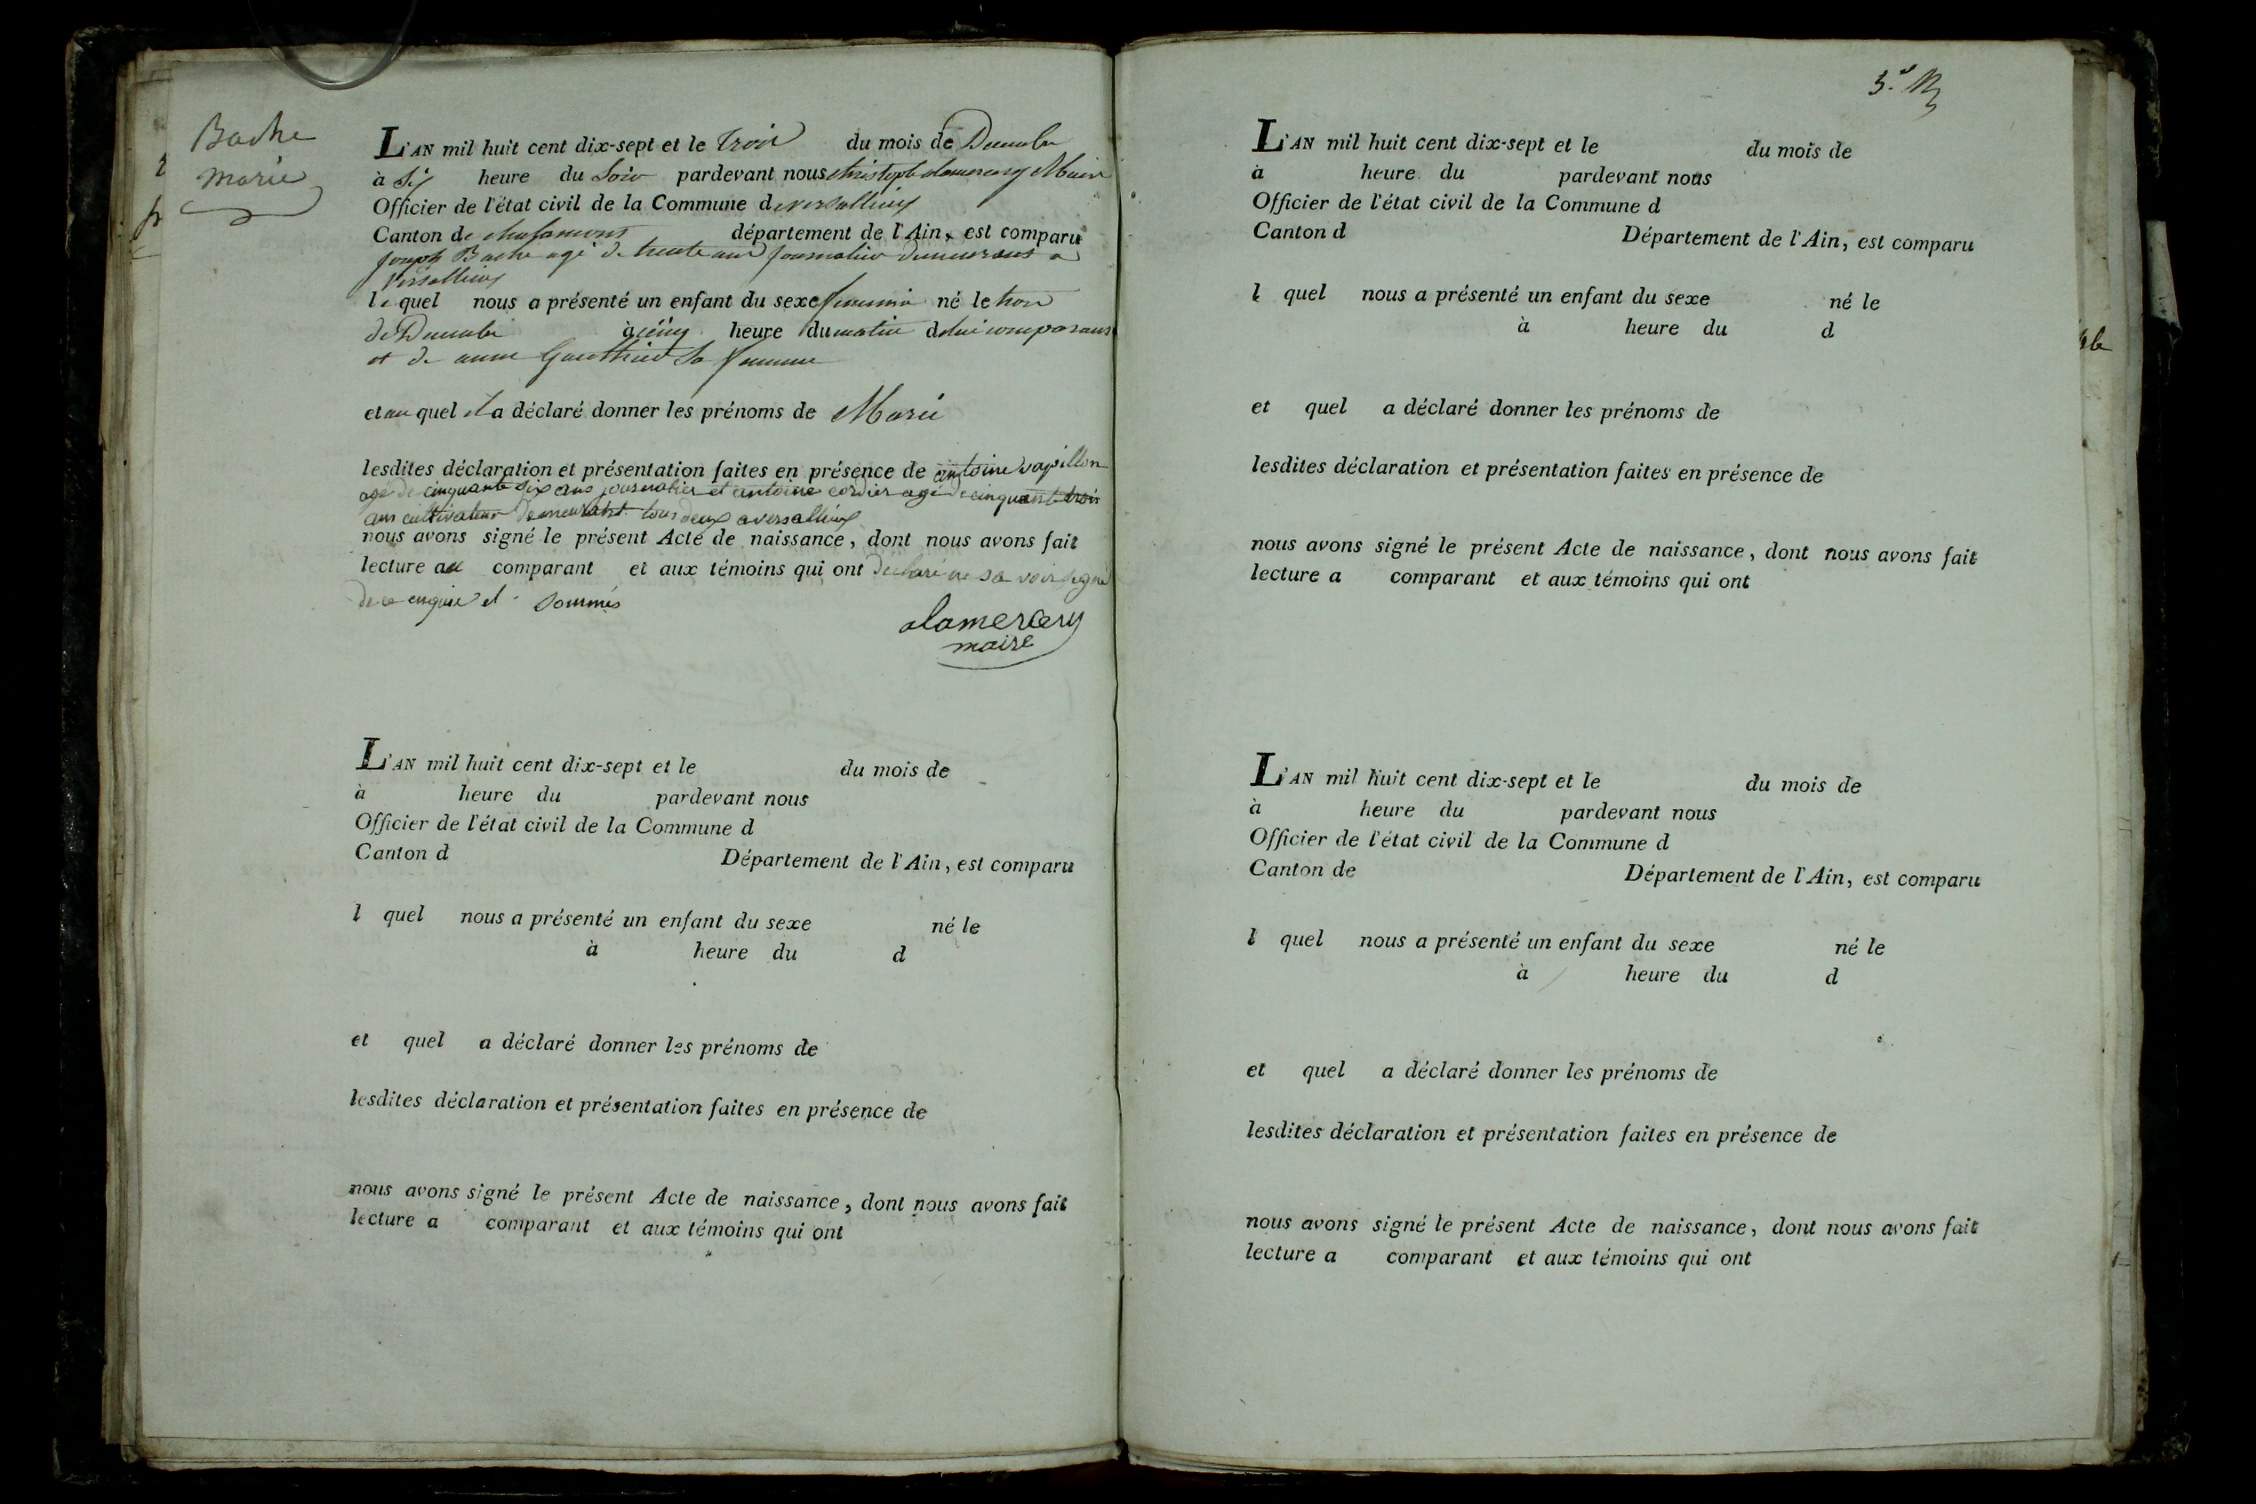 Bache
Marie
L'AN mil huit cent dix-sept et le trois du mois de Decembre
à Six heure du Soir pardevant nous christophe alamercery Maire
Officier de l'état civil de la Commune de versallieux
Canton de chalamont département de l'Ain, est comparu
joseph Bache agé de trente ans journalier demeurant a
versallieux
le quel nous a présenté un enfant du sexe feminin né le trois
de Decembre à cinq heure du matin de lui comparant
et de anne Gauthier sa femme
et au quel il a déclaré donner les prénoms de Marie
lesdites déclaration et présentation faites en présence de antoine vapillon
agé de cinquante six ans journalier et antoine cordier agé de cinquante trois
ans cultivateur demeurant tous deux a versallieux
nous avons signé le présent Acte de naissance, dont nous avons fait
lecture au comparant et aux témoins qui ont declaré ne savoir signé
de ce enquis et sommés
alamercery
maire
L'AN mil huit cent dix-sept et le du mois de
à heure du pardevant nous
Officier de l'état civil de la Commune d
Canton d Département de l'Ain, est comparu
l quel nous a présenté un enfant du sexe né le
à heure du d
et quel a déclaré donner les prénoms de
lesdites déclaration et présentation faites en présence de
nous avons signé le présent Acte de naissance, dont nous avons fait
lecture a comparant et aux témoins qui ont
L'AN mil huit cent dix-sept et le du mois de
à heure du pardevant nous
Officier de l'état civil de la Commune d
Canton d Département de l'Ain, est comparu
l quel nous a présenté un enfant du sexe né le
à heure du d
et quel a déclaré donner les prénoms de
lesdites déclaration et présentation faites en présence de
nous avons signé le présent Acte de naissance, dont nous avons fait
lecture a comparant et aux témoins qui ont
L'AN mil huit cent dix-sept et le du mois de
à heure du pardevant nous
Officier de l'état civil de la Commune d
Canton de Département de l'Ain, est comparu
l quel nous a présenté un enfant du sexe né le
à heure du d
et quel a déclaré donner les prénoms de
lesdites déclaration et présentation faites en présence de
nous avons signé le présent Acte de naissance, dont nous avons fait
lecture a comparant et aux témoins qui ont